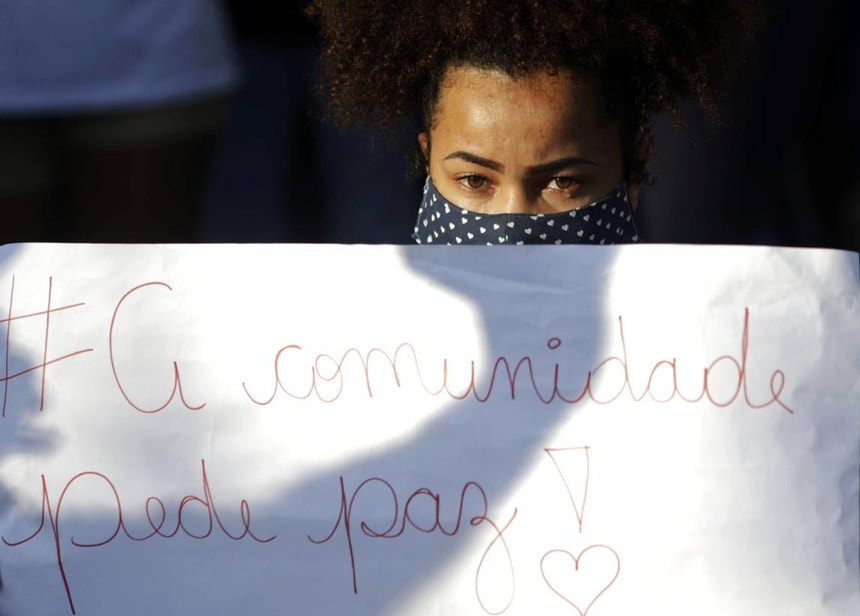 #A comunidade
pede paz!